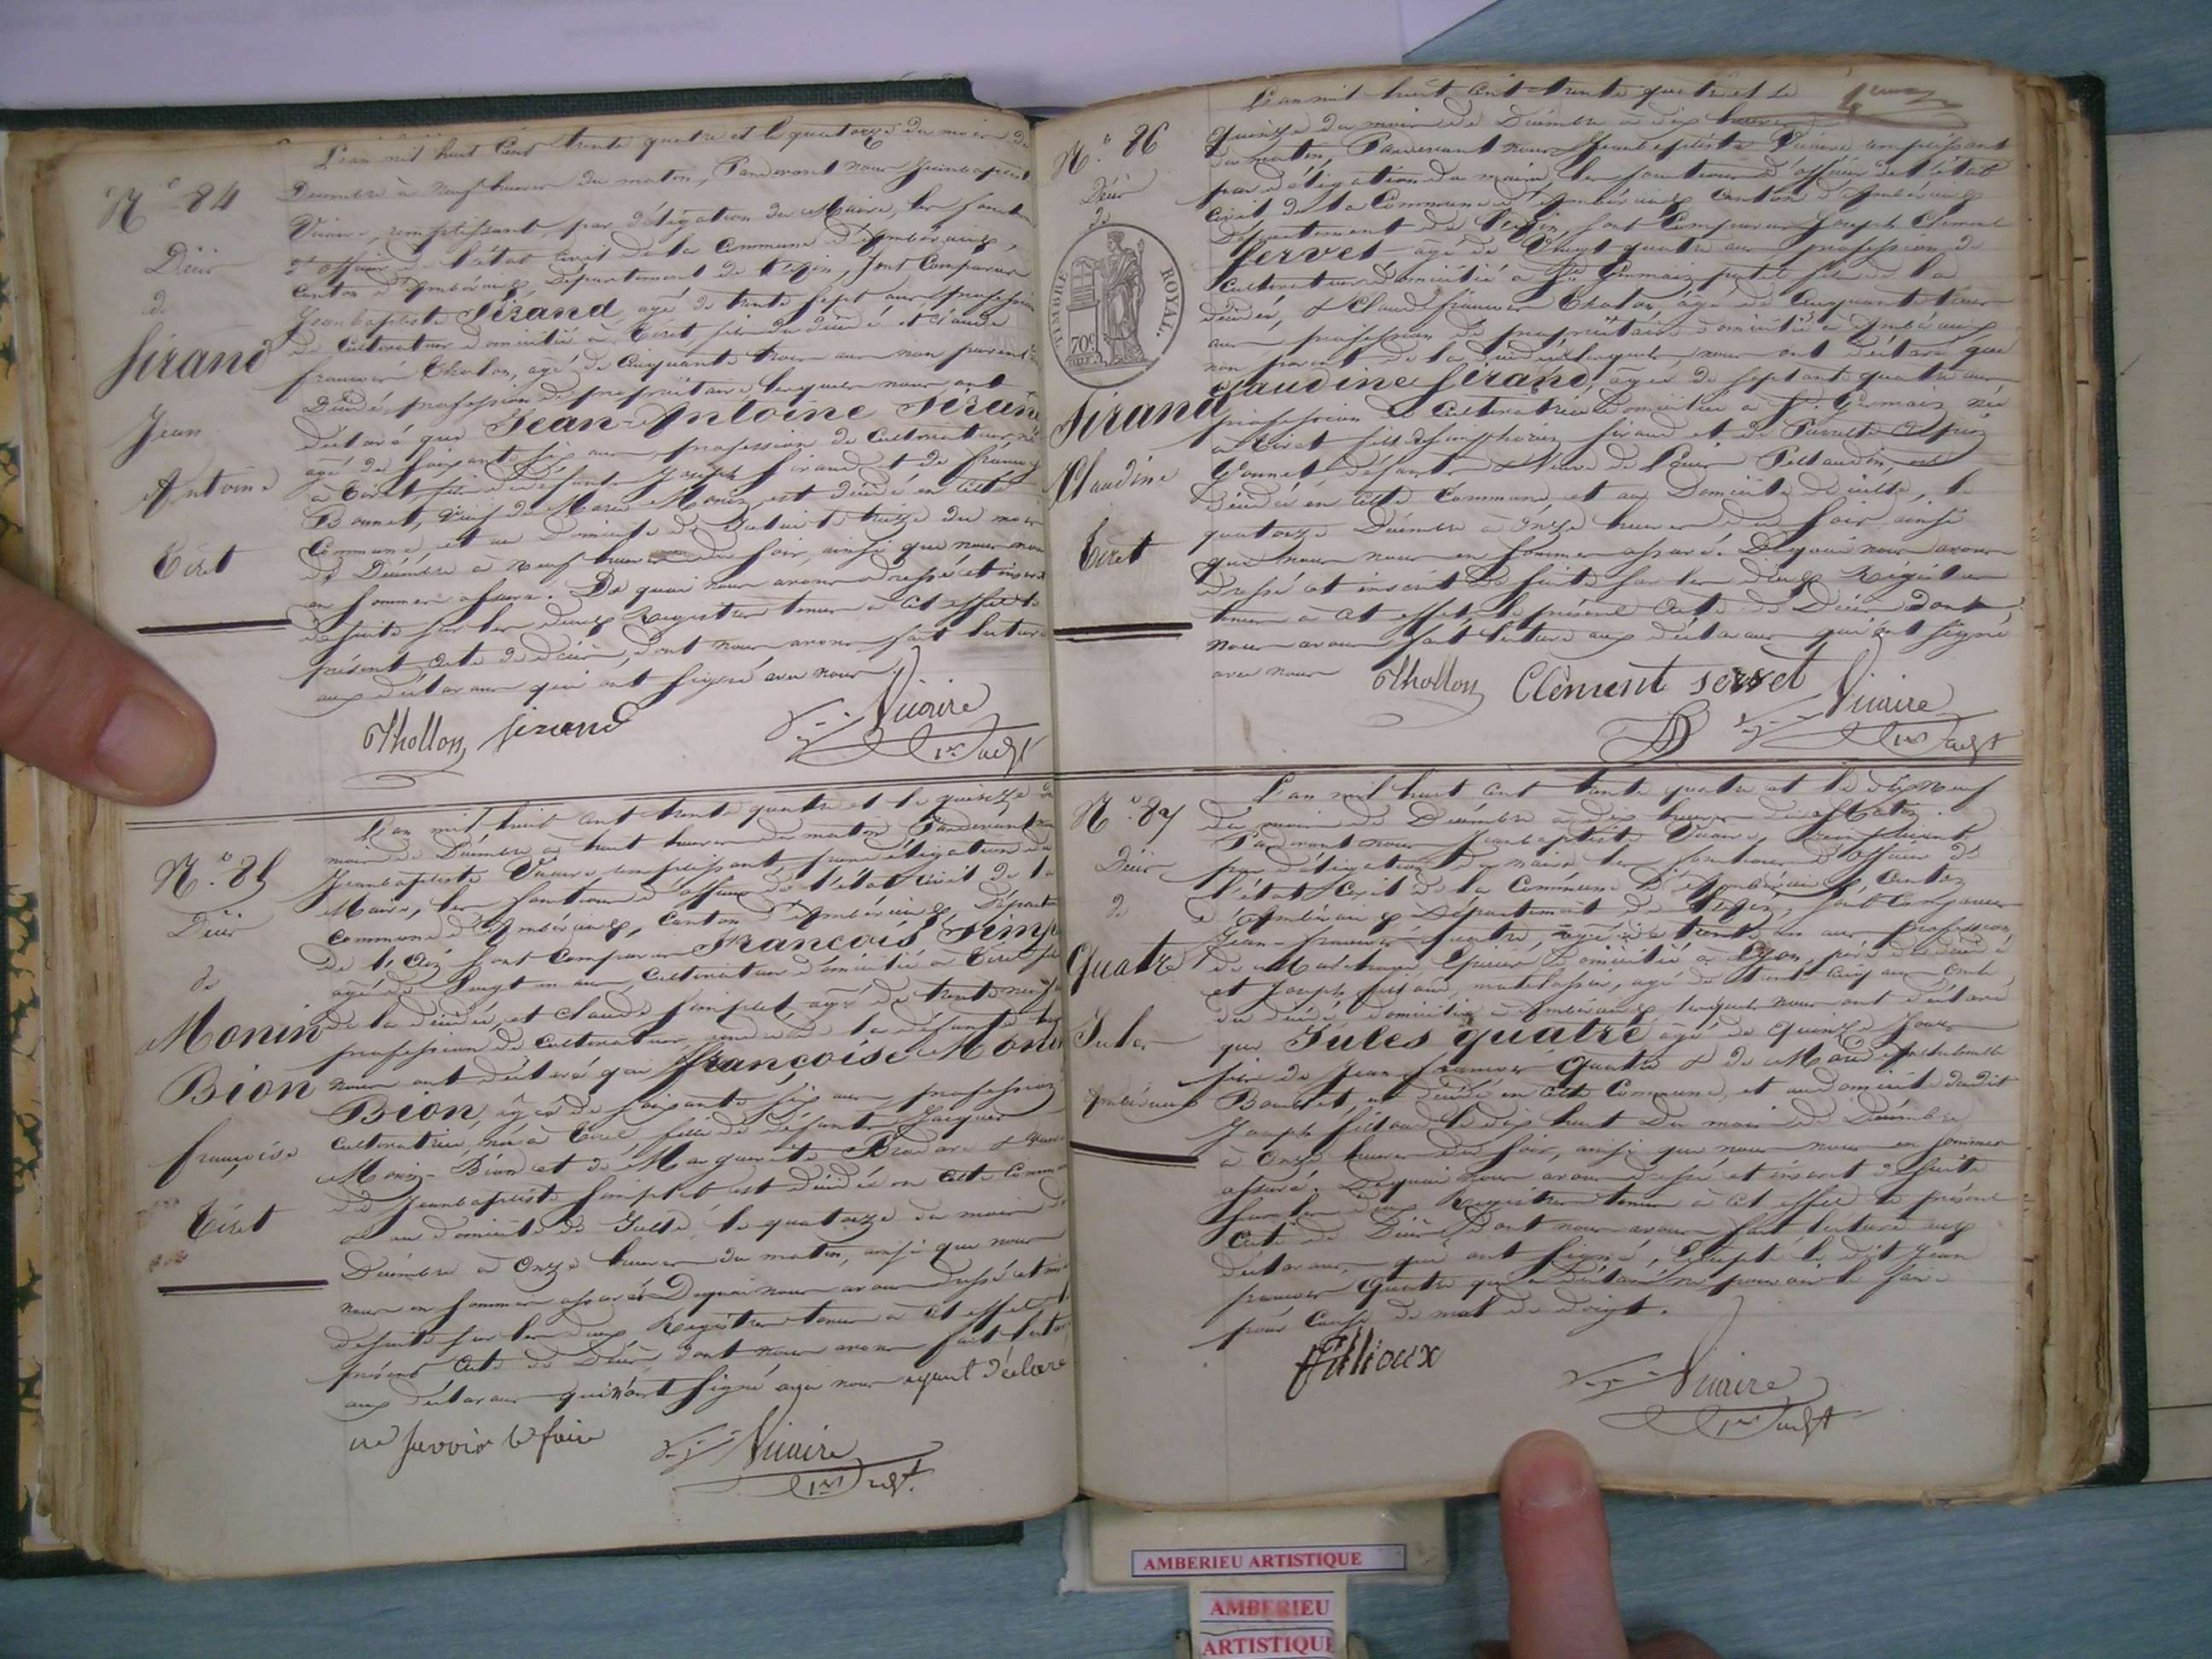 L'an mil huit Cent trente quatre et le quatorze du mois de
N.° 84
Décès
de
Sirand
Jean
Antoine
Tiret
Décembre à neuf heures du matin, Pardevant nous Jeanbaptiste
Vicaire, remplissant par délégation du Maire, les fonctions
d'officier de l'état civil de la Commune d'Ambérieux,
Canton d'Ambérieux, Département de l'Ain, sont Comparus
Jeanbaptiste Sirand, agé de trente sept ans, profession
de Cultivateur domicilié à Tiret, fils du décédé et Claude
françois Thollon, agé de Cinquante trois ans non parent du
Décédé, profession de propriétaire lesquels nous ont
déclaré que Jean-Antoine Sirand
agé de soixante six ans, profession de Cultivateur, né
à Tiret fils de défunts Joseph Sirand et de françoise
Bonnet, Veuf de Marie Monin, est décédé en cette
Commune, et au Domicile de Jullait le treize du mois
de Décembre à neuf heures du soir, ainsi que nous nous
en sommes assuré. De quoi nous avons dressé et inscrit
de suite sur les deux Registres tenus à cet effet le
présent acte de décès, dont nous avons fait lecture
aux déclarans qui ont signé avec nous.
Thollon Sirand Vicaire
1er adjt
N.° 85
Décès
de
Monin
Bion
françoise
Tiret
L'an mil huit cent trente quatre et le quinze du
mois de Décembre à huit heures du matin Pardevant nous
Jeanbaptiste Vicaire remplissant, par délégation du
Maire, les fonctions d'officier de l'état civil de la
Commune d'Ambérieux, Canton d'Ambérieux, Départ
de l'Ain sont Comparus François Simp
agé de Vingt un ans, Cultivateur domicilié à Tiret fils
de la décédée, et Claude Simplet, agé de trente neuf
profession de Cultivateur, de la défunte
nous ont déclaré que françoise Monin
Bion, agée de soixante six ans, profession
Cultivatrice, née à Tiret, fille de défunts Jacques
Monin-Bion et de Marguerite Brodard & Veuve
de Jeanbaptiste Simplet est décédée en cette Commune
& au domicile de Jullté, le quatorze du mois de
Décembre à Onze heures du matin, ainsi que nous
nous en sommes assurés De quoi nous avons dressé et ins
de suite sur les deux Registres tenus à cet effet le
présent acte de Décès, dont nous avons fait lecture
aux déclarans qui n'ont signé avec nous ayant déclaré
ne savoir le faire
Vicaire
1er adjt.
N.° 86
Décès
de
TIMBRE ROYAL.
70c
Sirand
Claudine
Tiret
L'an mil huit Cent trente quatre et le
Quinze du mois de Décembre à dix heures
du matin, Pardevant nous Jeanbaptiste Vicaire remplissant
par délégation du maire les fonctions d'officier de l'état
Civil de la Commune d'Ambérieux Canton d'Ambérieux
Département de l'Ain, sont Comparus Joseph Clément
Servet agé de Vingt quatre ans profession de
Cultivateur domicilié à St. Germain, petit fils de la
décédée, & Claude françois Thollon, agé de Cinquante trois
ans profession de propriétaire domicilié à Ambérieux
non parent de la décédée lesquels nous ont déclaré que
Claudine Sirand, agée de septante quatre ans
profession de Cultivatrice domiciliée à St. Germain née
à Tiret fille de Simphorien Sirand et de
Bonnet défunts & Veuve de Louis Pellaudin, est
Décédée en cette Commune, et au Domicile de celle, le
quatorze Décembre à Onze heures du soir, ainsi
que nous nous en sommes assuré. De quoi nous avons
dressé et inscrit de suite sur les deux Registres
tenus à cet effet, le présent acte de Décès dont
nous avons fait lecture aux déclarans qui ont signé
avec nous Thollon Clement servet Vicaire
1er adjt
N.° 87
Décès
de
Quatre
Jules
Ambérieux
L'an mil huit cent trente quatre et le dix neuf
du mois de Décembre à dix heures du Matin.
Pardevant nous Jeanbaptiste Vicaire, Remplissant
par délégation du maire les fonctions d'officier de
l'état Civil de la Commune d'Ambérieux, Canton
d'Ambérieux Département de l'Ain, sont Comparus
Jean-françois Quatre, agé de trente un ans profession
de domicilié à Lyon, père du décédé
et Joseph filliaux, matelassier, agé de trente cinq ans oncle
du décédé domicilié à Ambérieux, lesquels nous ont déclaré
que Jules quatre agé de quinze jours
fils de Jean françois Quatre & de Marie
Bourdet, est décédé en cette Commune, et au domicile dudit
Joseph filliaux le dix huit Du mois de Décembre
à Onze heures du soir, ainsi que nous nous en sommes
assuré. De quoi nous avons dressé et inscrit de suite
sur les deux Registres tenus à cet effet le présent
acte de Décès, dont nous avons fait lecture aux
déclarans, qui ont signé, Excepté le dit Jean
françois Quatre qui a déclaré ne pouvoir le faire
pour cause de mal de doigt.
fillioux
Vicaire
1er adjt
AMBERIEU ARTISTIQUE
AMBERIEU
ARTISTIQUE